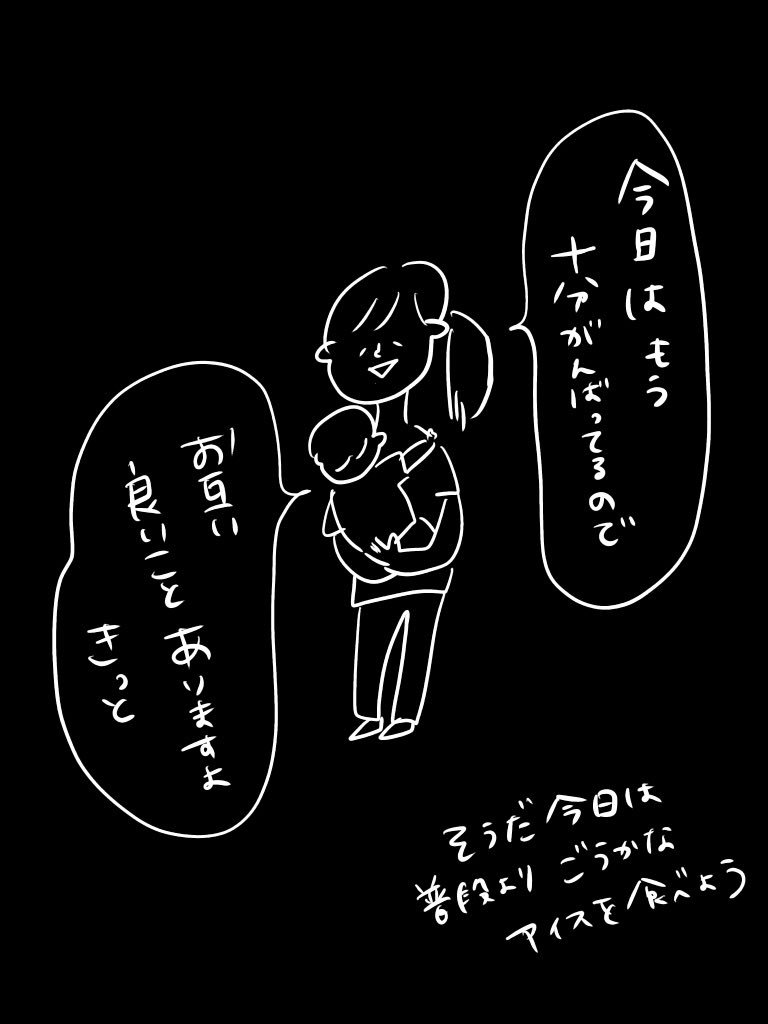 今日はもう
十分がんばってるので
お互い
良いことありますよ
きっと
そうだ今日は
普段よりごうかな
アイスを食べよう